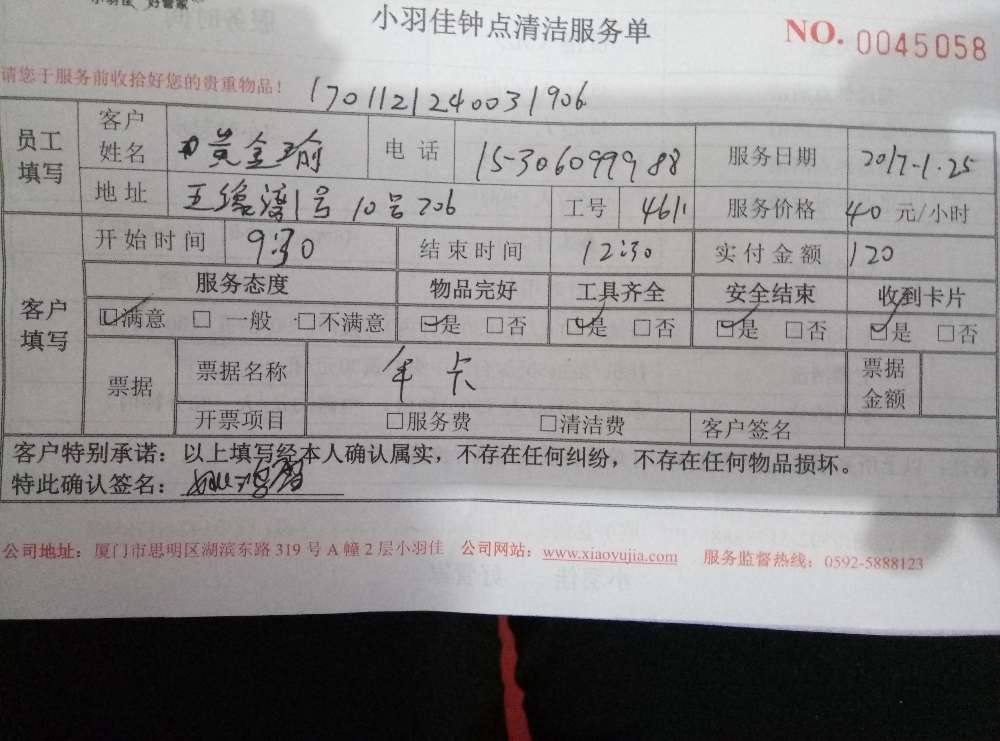 小羽佳 好管家
小羽佳钟点清洁服务单
NO. 0045058
请您于服务前收拾好您的贵重物品！ 1701121240031906
员工填写 客户姓名 黄金瑜 电话 15-3060999 88 服务日期 2017-1.25
地址 1号 10号706 工号 4611 服务价格 40 元/小时
客户填写 开始时间 9:30 结束时间 12:30 实付金额 120
服务态度 物品完好 工具齐全 安全结束 收到卡片
☑满意 □一般 □不满意 ☑是 □否 ☑是 □否 ☑是 □否 ☑是 □否
票据 票据名称 年卡 票据金额
开票项目 □服务费 □清洁费 客户签名
客户特别承诺：以上填写经本人确认属实，不存在任何纠纷，不存在任何物品损坏。
特此确认签名：
公司地址：厦门市思明区湖滨东路 319 号 A 幢 2 层小羽佳 公司网站：www.xiaoyujia.com 服务监督热线：0592-5888123